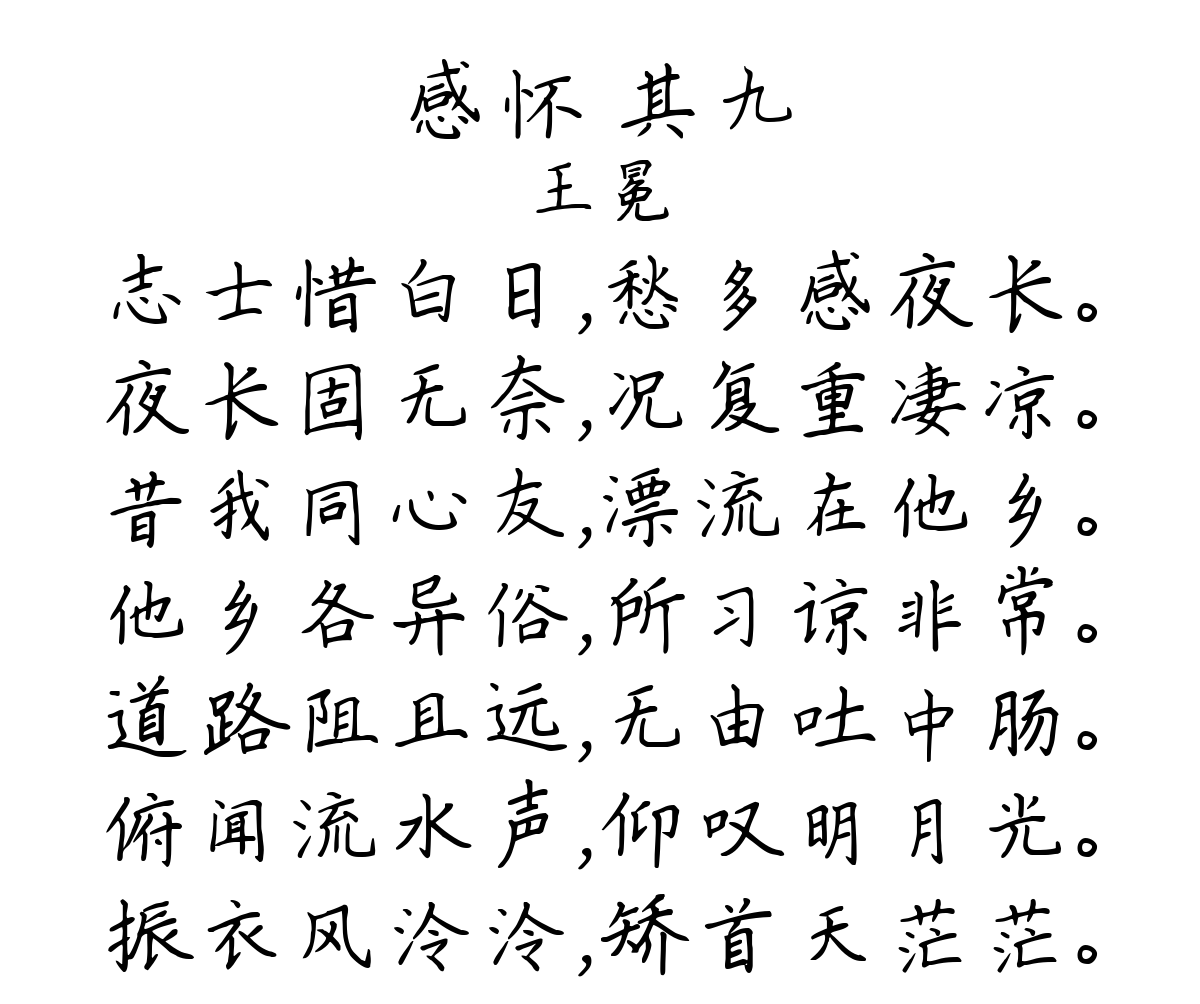 感怀 其九
王冕
志士惜白日,愁多感夜长。
夜长固无奈,况复重凄凉。
昔我同心友,漂流在他乡。
他乡各异俗,所习谅非常。
道路阻且远,无由吐中肠。
俯闻流水声,仰叹明月光。
振衣风泠泠,矫首天茫茫。